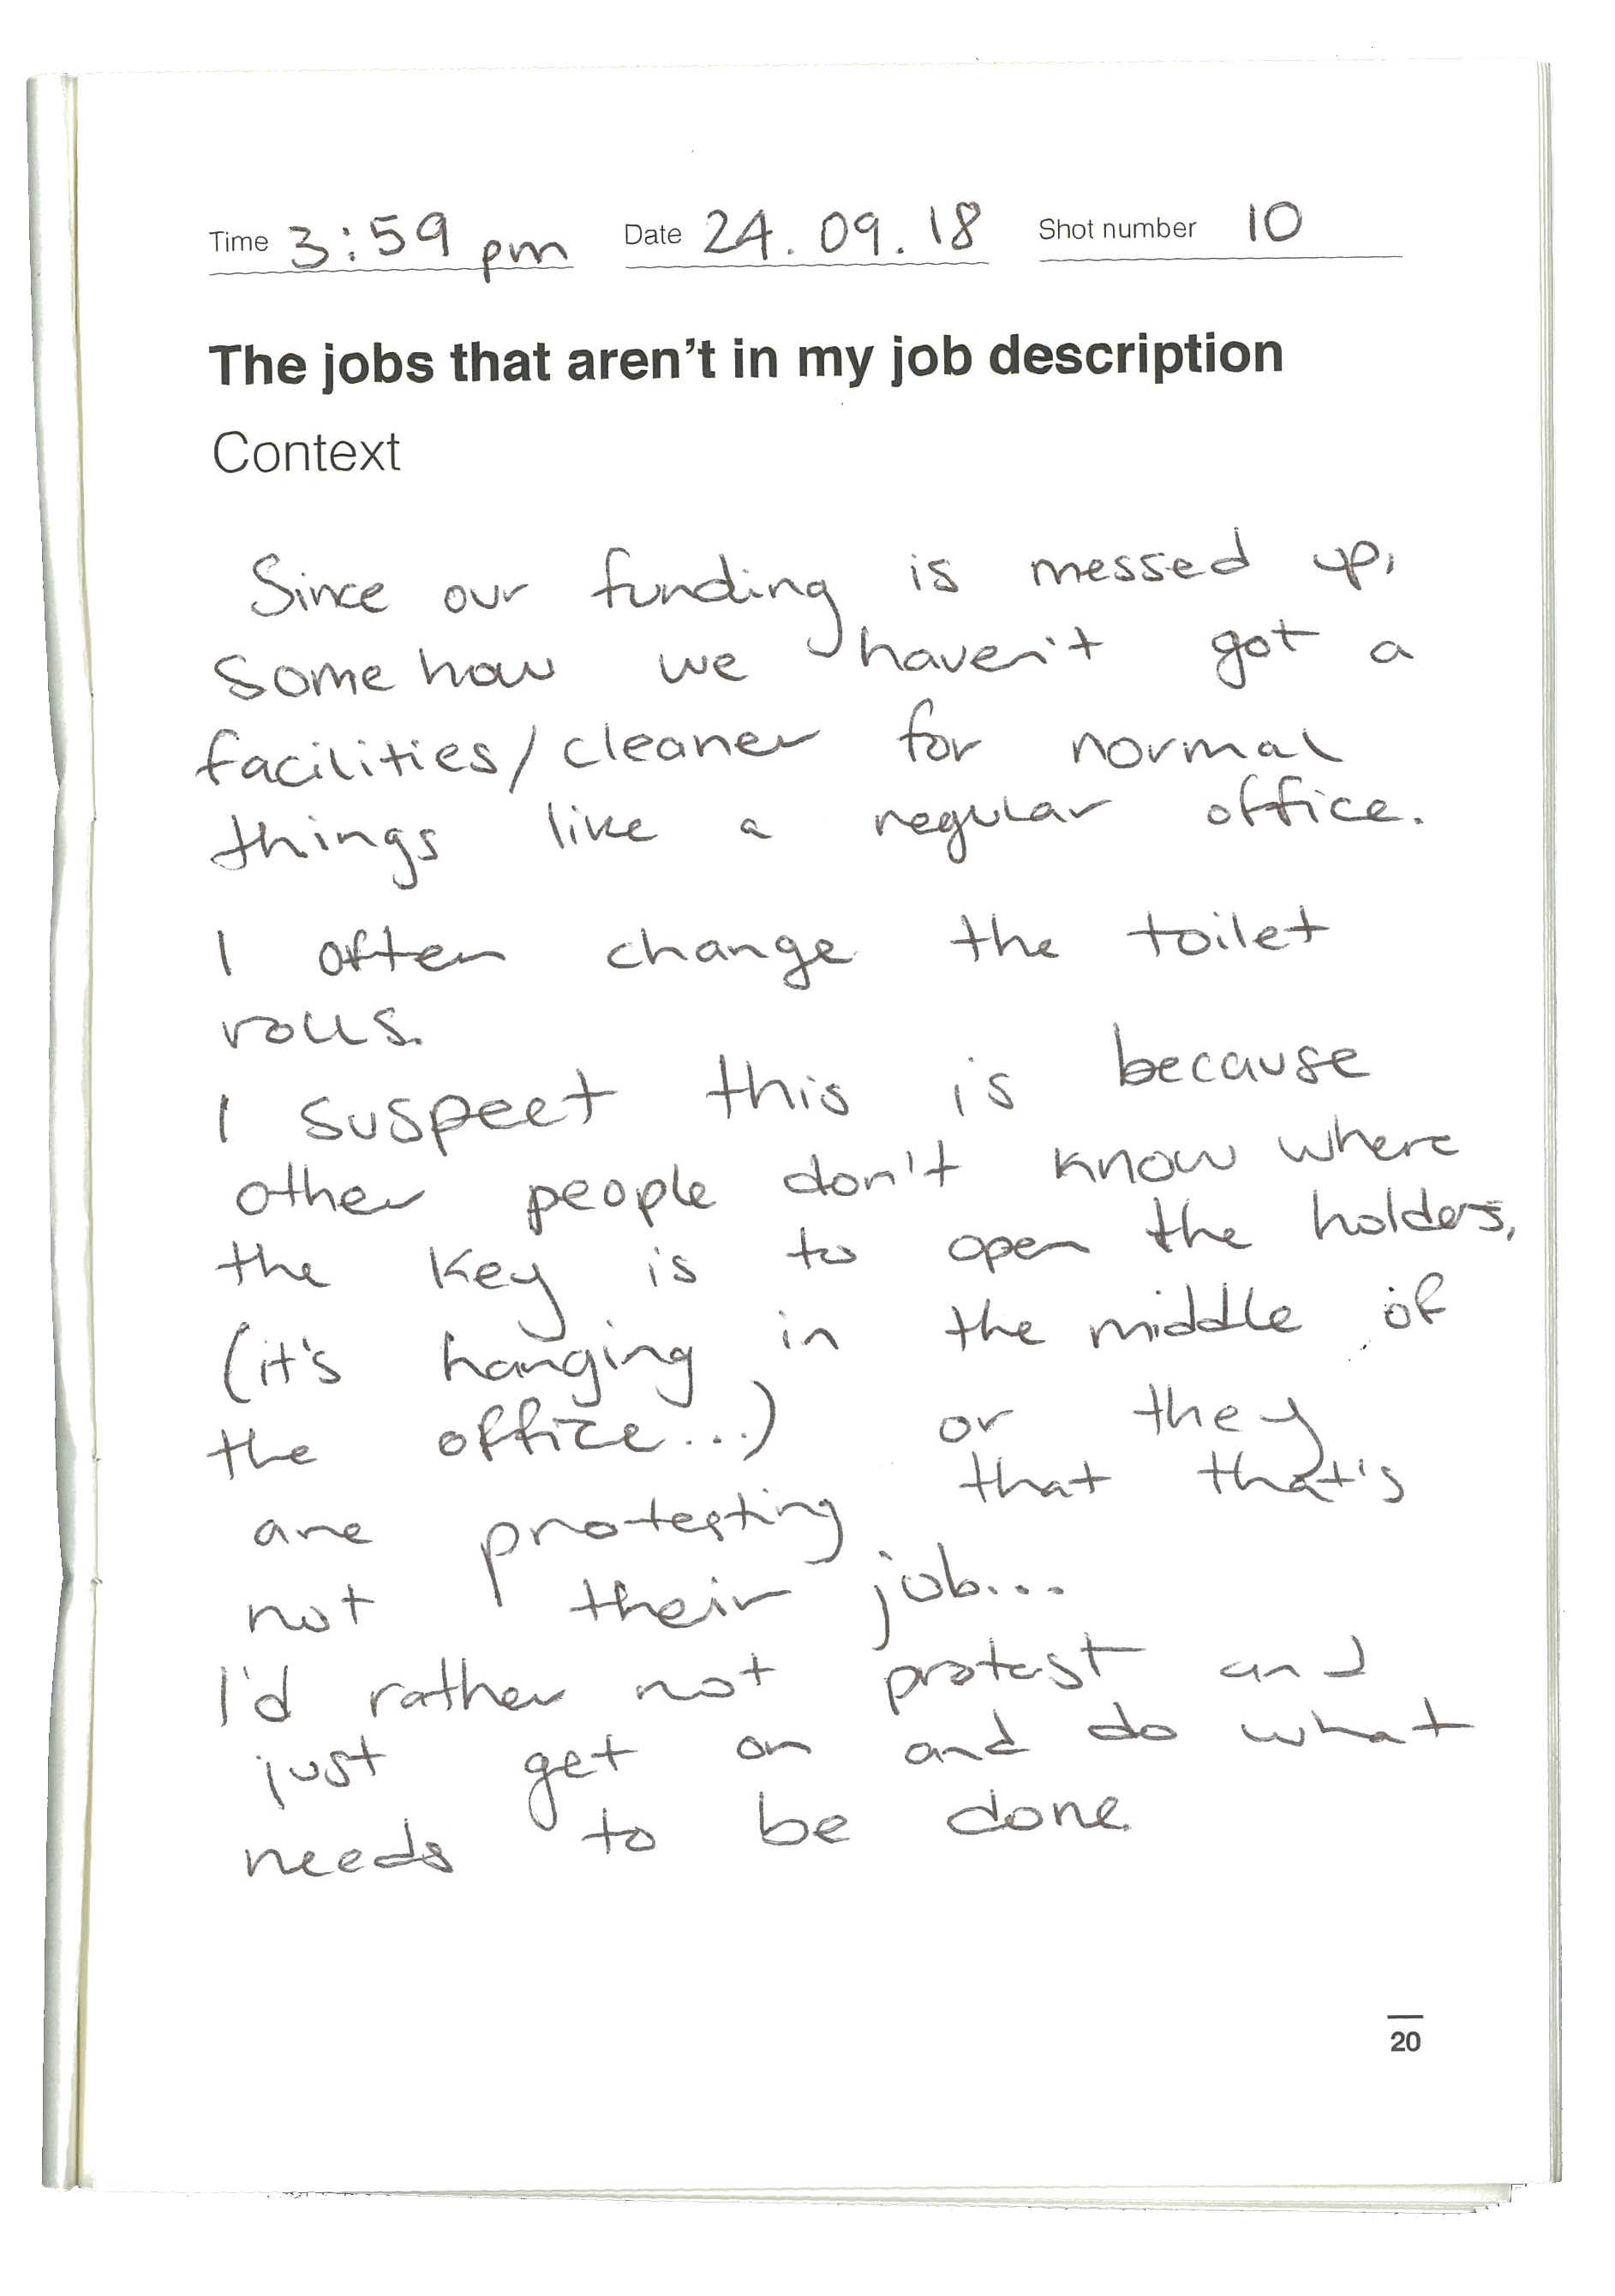 Time 3:59 pm Date 24.09.18 Shot number 10
The jobs that aren't in my job description
Context
Since our funding is messed up,
somehow we haven't got a
facilities/cleaner for normal
things like a regular office.
I often change the toilet
rolls.
I suspect this is because
other people don't know where
the key is to open the holders,
(it's hanging in the middle of
the office...) or they
are protesting that that's
not their job...
I'd rather not protest and
just get on and do what
needs to be done.
20